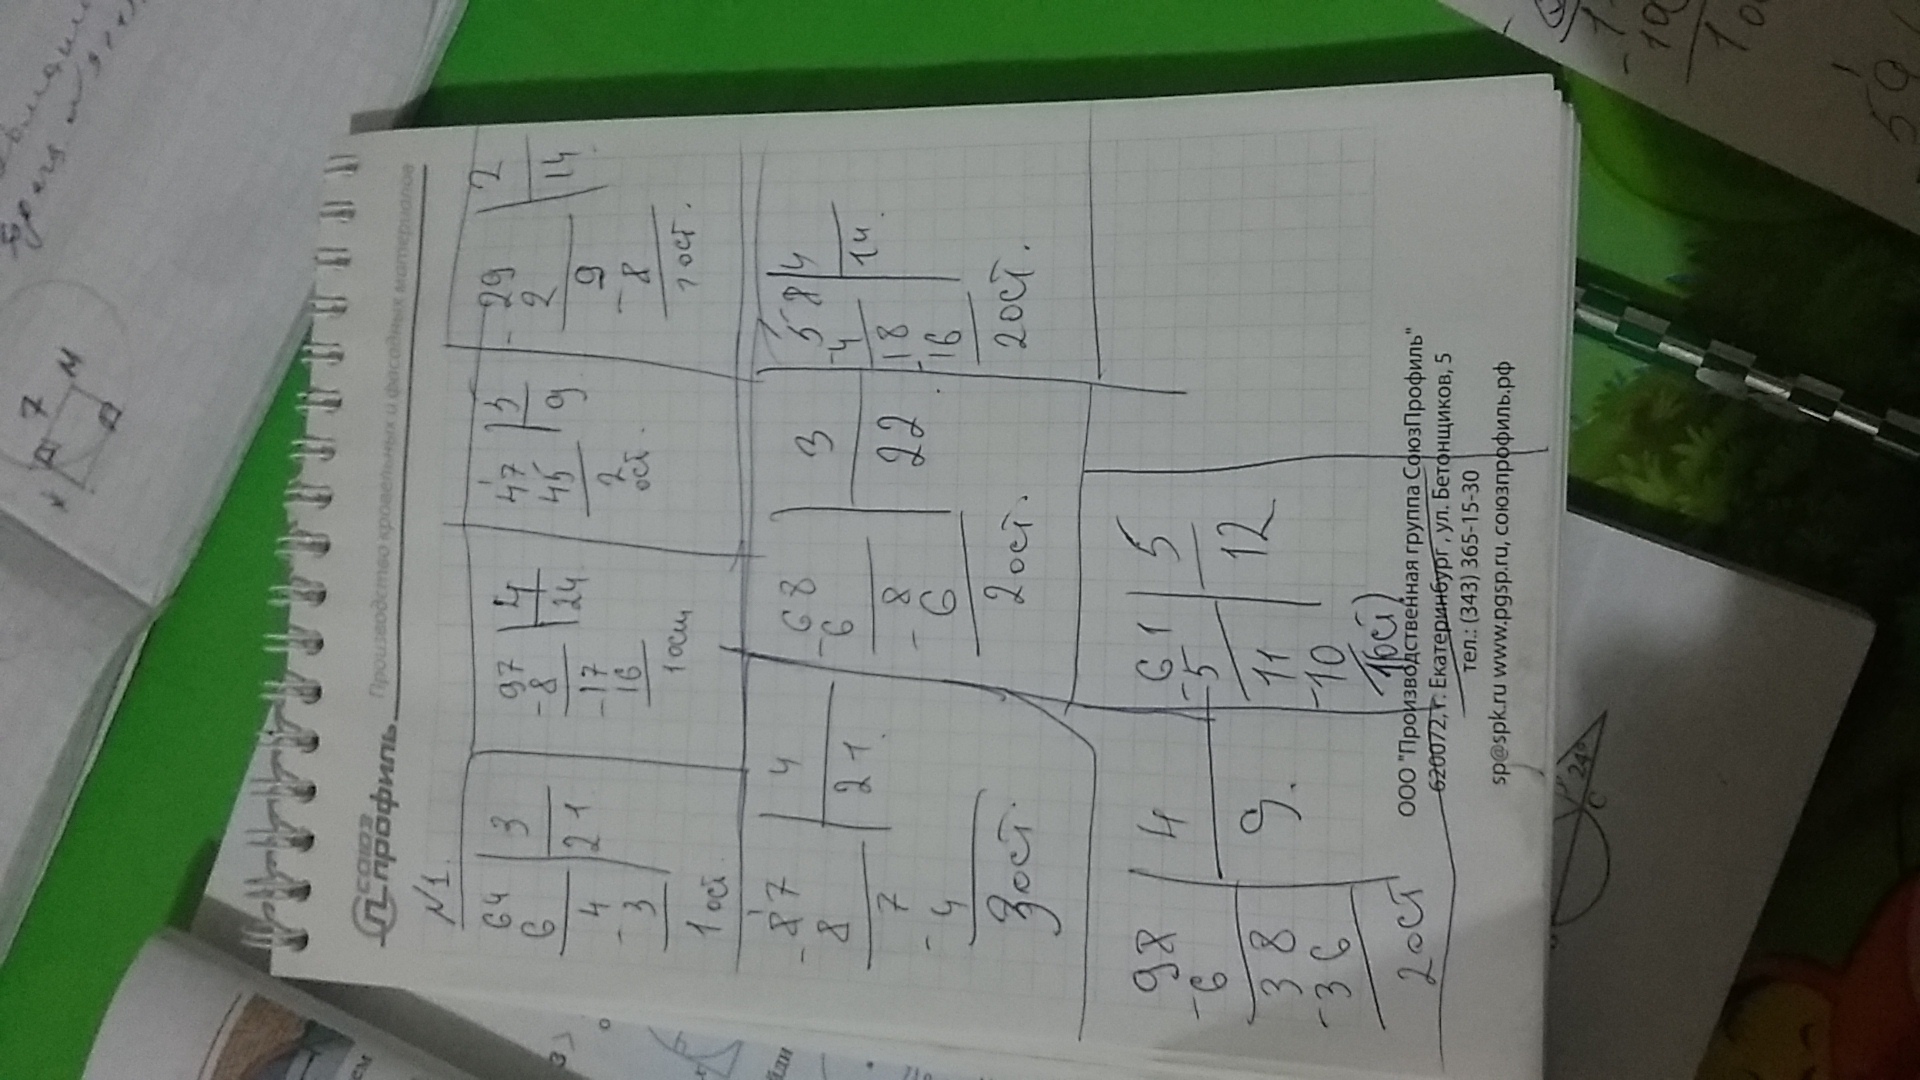 союз
профиль Производство кровельных и фасадных материалов
N1.
64 | 3
6 | 21
- 4
3
1 ост
- 97 | 4
8 | 24
- 17
16
1 ост
47 | 5
45 | 9
2
ост.
- 29 | 2
2 | 14.
9
- 8
1 ост.
- 87 | 4
8 | 21.
7
- 4
3 ост.
- 68 | 3
6 | 22.
8
- 6
2 ост.
58 | 4
- 4 | 14.
18
- 16
2 ост.
98 | 4
- 6 | 9.
38
- 36
2 ост
61 | 5
- 5 | 12
11
- 10
1 ост
ООО "Производственная группа СоюзПрофиль"
620072, г. Екатеринбург, ул. Бетонщиков, 5
тел.: (343) 365-15-30
sp@spk.ru www.pgsp.ru, союзпрофиль.рф
7
M
K
24°
C
59